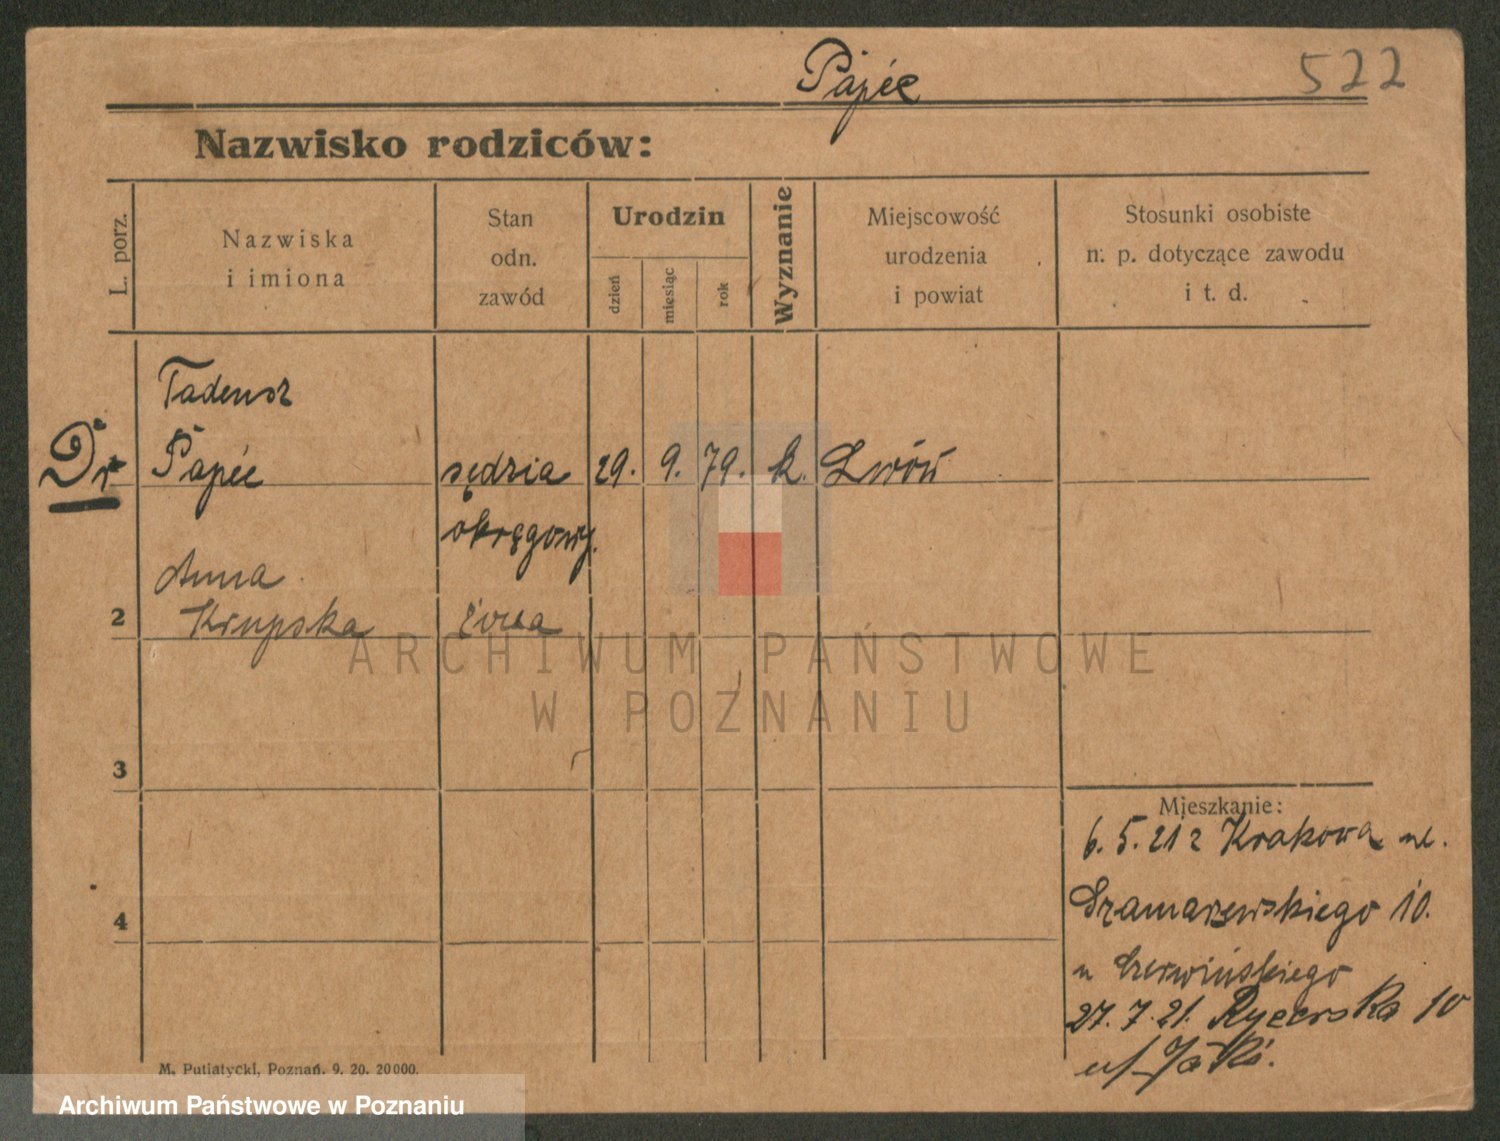 Papée
522
Nazwisko rodziców:
L. porz.
Nazwiska
i imiona
Stan
odn.
zawód
Urodzin
dzień
miesiąc
rok
Wyznanie
Miejscowość
urodzenia
i powiat
Stosunki osobiste
n. p. dotyczące zawodu
i t. d.
Tadeusz
Dr Papée sędzia 29. 9. 79. k. Lwów
okręgowy.
Anna
2 Krupska żona
ARCHIWUM PAŃSTWOWE
W POZNANIU
3
4
Mieszkanie:
6. 5. 21 z Krakowa ul.
Szamarzewskiego 10.
u Czerwińskiego
27. 7. 21. Rycerska 10
u/
M. Putiatycki, Poznań. 9. 20. 20000.
Archiwum Państwowe w Poznaniu